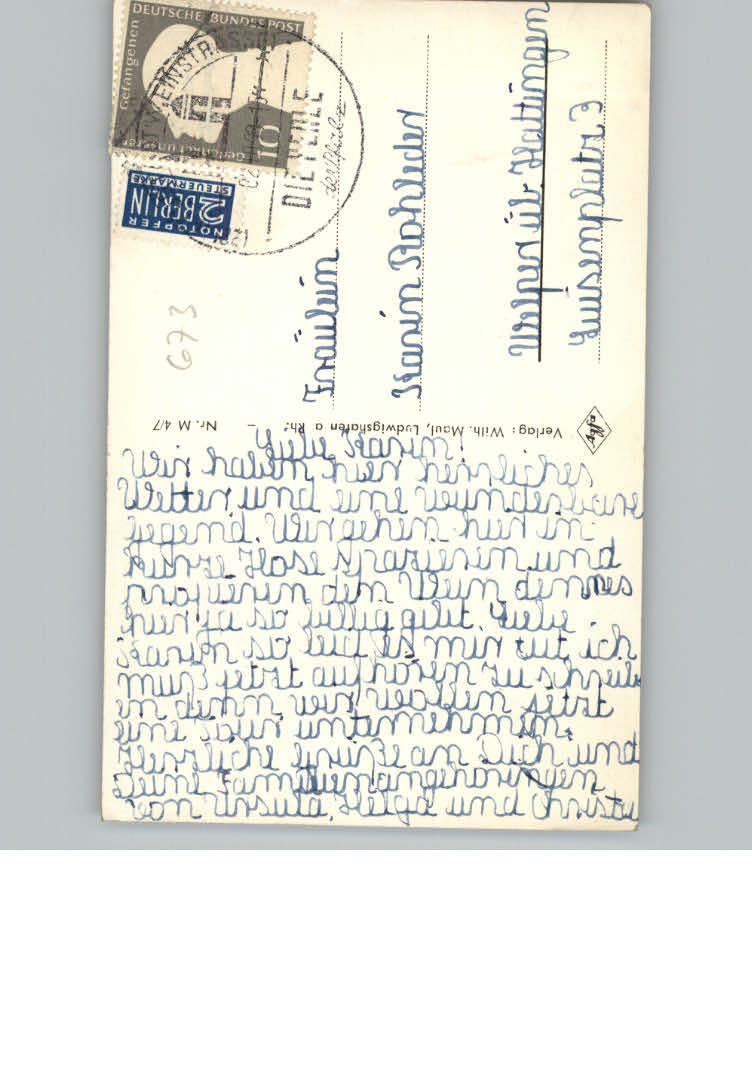 Liebe Karin!
Wir haben hier herrliches
Wetter und eine wunderbare
gegend. Wir gehen hier in
kurze Hose spazieren und
probieren den Wein denn es
hier ja so billig gibt. Liebe
Karin so leid es mir tut ich
muß jetzt aufhören zu schreib
en denn wir wollen jetzt
eine tour unternehmen.
Herzliche grüße an Dich und
Deine Familienangehörigen
von Ursula, Helga und Christa
Fräulein
Karin Rohleder
Welper üb. Hattingen
3
DEUTSCHE BUNDESPOST
Gefangenen
Gedenket unserer
10
NOTOPFER
2 BERLIN
STEUERMARKE
DIE PERLE
der Pfalz
673
Verlag: Wilh. Maul, Ludwigshafen a Rh. –
Nr. M 4/7